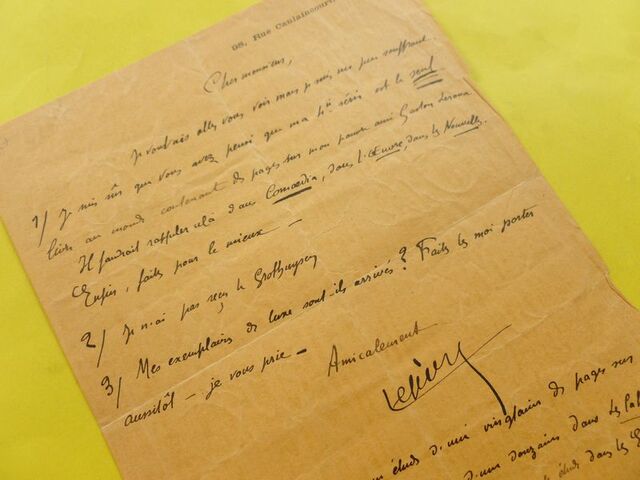 98, Rue Caulaincourt.
Cher monsieur,
Je voulais aller vous voir mais je suis un peu souffrant.
1) Je suis sûr que vous avez pensé que ma 4e série est le seul
livre au monde contenant des pages sur mon pauvre ami Gaston Leroux
Il faudrait rappeler cela dans Comœdia, dans l'Œuvre, dans les Nouvelles.
Enfin, faites pour le mieux —
2) Je n'ai pas reçu le Grothuysen
3) Mes exemplaires de luxe sont-ils arrivés ? Faites les moi porter
aussitôt — je vous prie —
Amicalement
étude d'une vingtaine de pages sur
d'une douzaine dans les
étude dans les